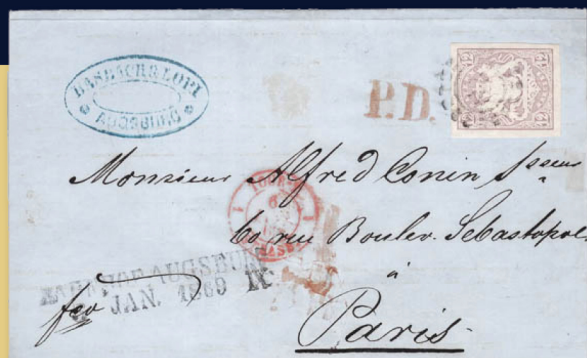 AUGSBURG
P.D.
Monsieur Alfred Conin
60 rue Boulev. Sebastopol
à
BAHNHOF AUGSBURG
JAN. 1869
fco
Paris